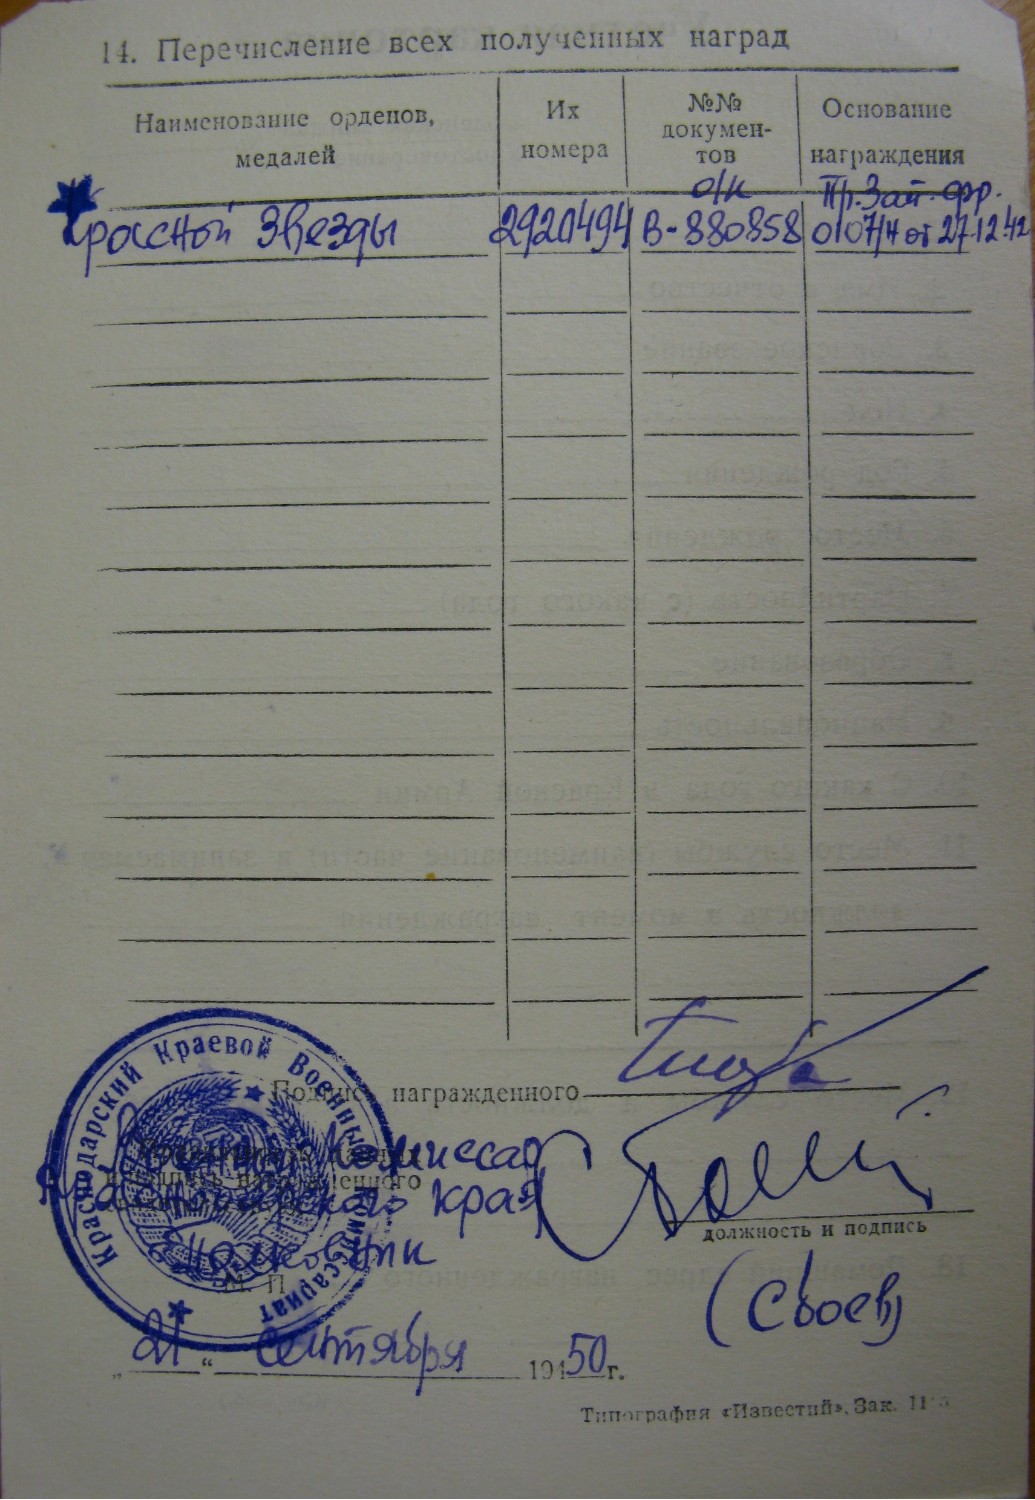 14. Перечисление всех полученных наград
Наименование орденов, медалей
Их номера
№№ документов
Основание награждения
Красной Звезды
2920494
о/к
В-880858
Пр. Зап. фр.
0107/н от 27.12.42
Подпись награжденного
Военный Комиссар
Краснодарского края
Полковник
должность и подпись
М. П.
(Сбоев)
„21“ сентября 1950 г.
Краснодарский Краевой Военный Комиссариат
Типография «Известий». Зак.